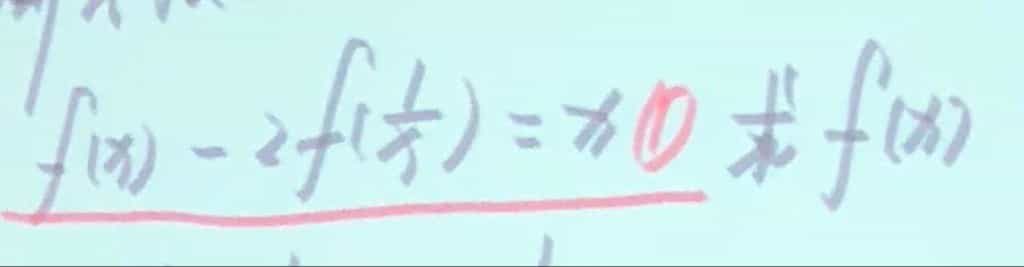 f(x) - 2f(1/x) = x ① 求 f(x)